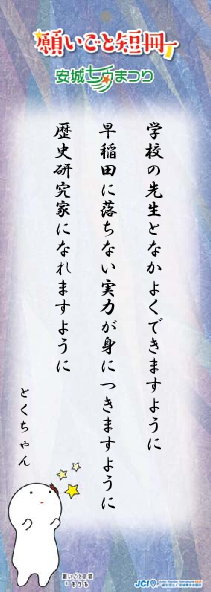 願いごと短冊
安城七夕まつり
学校の先生となかよくできますように
早稲田に落ちない実力が身につきますように
歴史研究家になれますように
とくちゃん
願いごと短冊
JCI